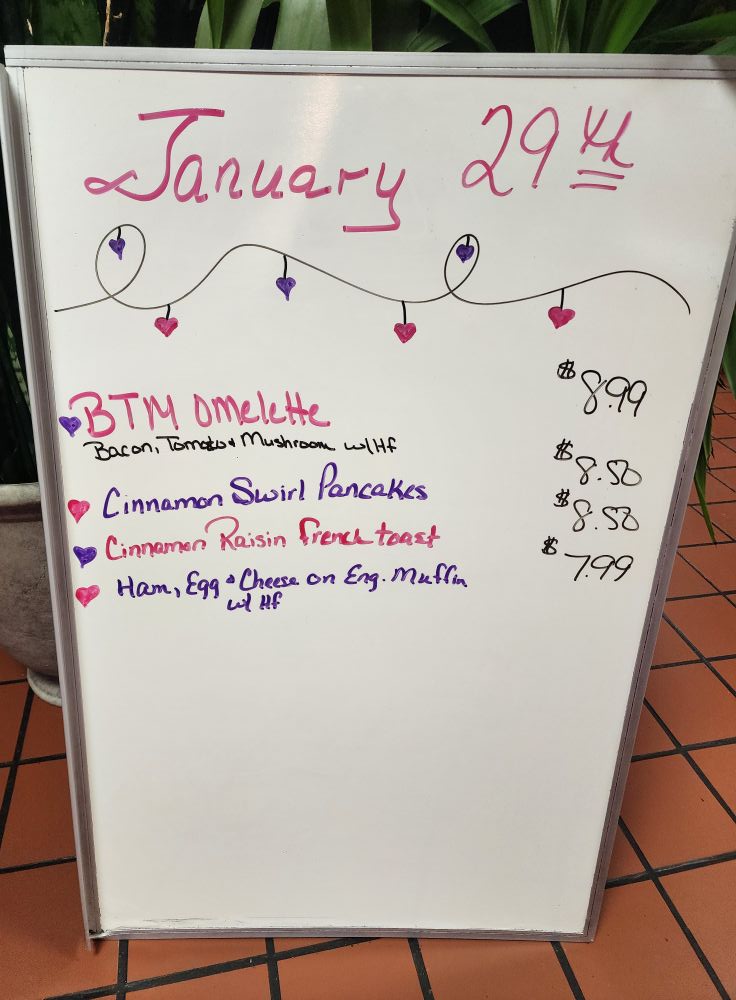 January 29th
BTM Omelette $8.99
Bacon, Tomato & Mushroom w/Hf
Cinnamon Swirl Pancakes $8.50
Cinnamon Raisin French toast $8.50
Ham, Egg & Cheese on Eng. Muffin $7.99
w/ Hf